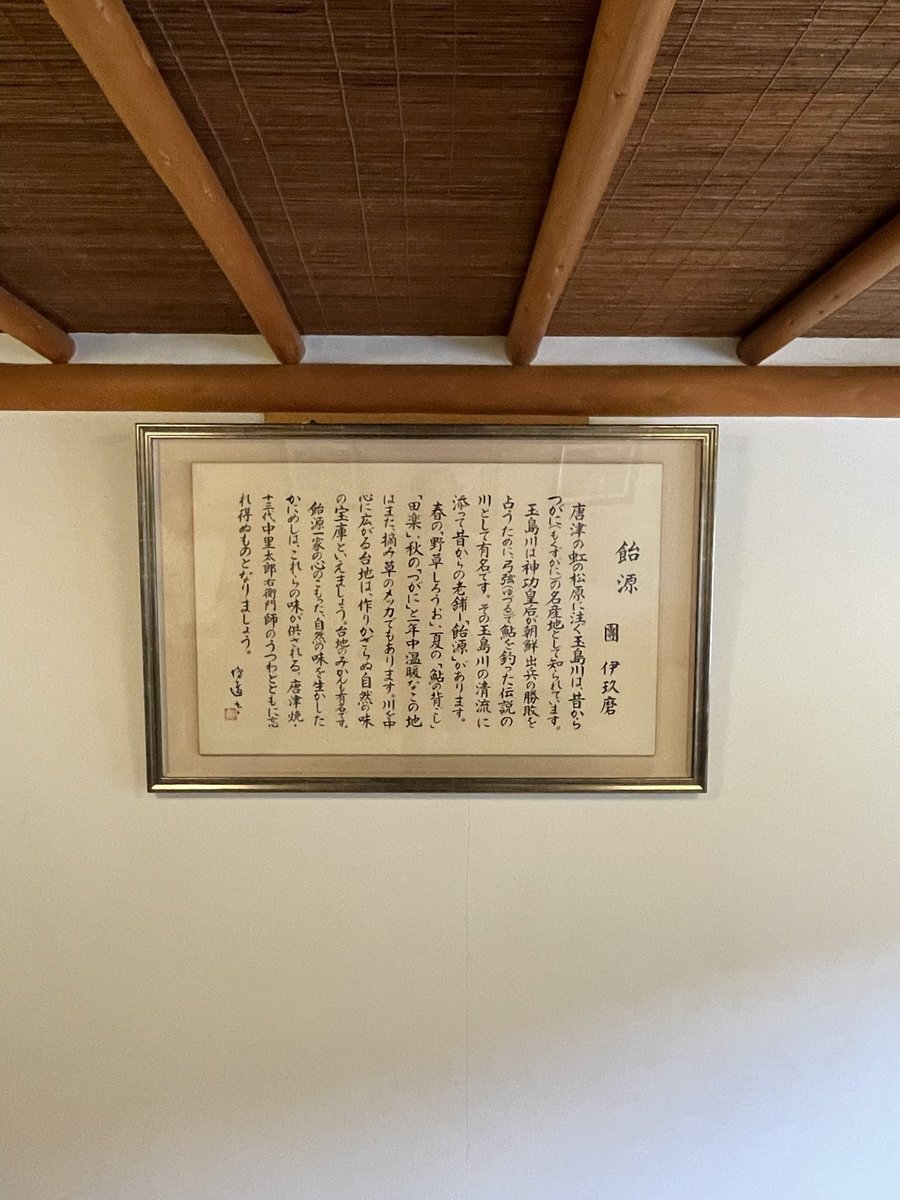 飴源
團 伊玖磨
唐津の虹の松原に注ぐ玉島川は、昔から
つがに(もくずかに)の名産地として知られています。
玉島川は神功皇后が朝鮮出兵の勝敗を
占うために、弓弦(ゆづる)で鮎を釣った伝説の
川として有名です。その玉島川の清流に
添って昔からの老舗―「飴源」があります。
春の、「野草しろうお」、夏の、「鮎の背ごし」
「田楽」、秋の、「つがに」と一年中温暖なこの地
はまた、摘み草のメッカでもあります。川を中
心に広がる台地は、作りかざらぬ自然の味
の宝庫といえましょう。台地のみかんも有名です。
飴源一家の心のこもった、自然の味を生かした
かにめしは、これらの味が供される、唐津焼・
十三代中里太郎右衛門師のうつわとともに忘
れ得ぬものとなりましょう。